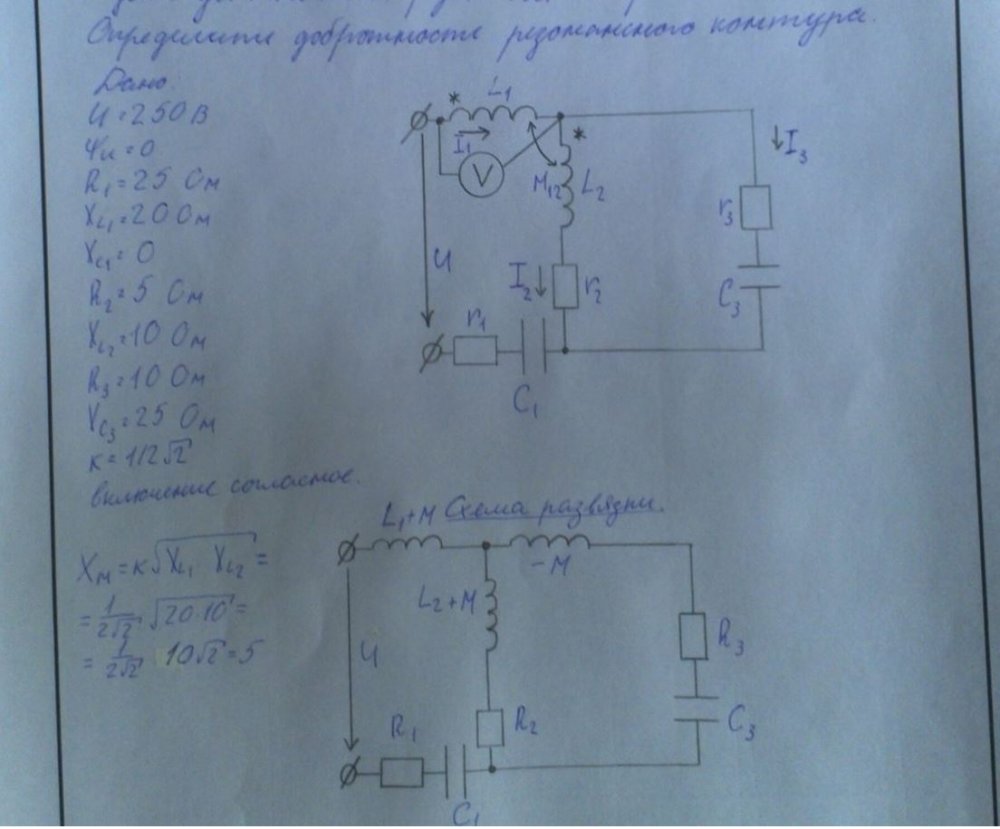 Определите добротность резонансного контура.
Дано.
U=250 В
Ψu=0
R1=25 Ом
XL1=20 Ом
XC1=0
R2=5 Ом
XL2=10 Ом
R3=10 Ом
XC3=25 Ом
к=1/2√2
включение согласное.
* L1
I1
V
M12
*
L2
I3
r3
C3
U
I2
r2
r1
C1
L1+M Схема развязки.
-M
L2+M
U
R3
C3
R2
R1
C1
XM=к√XL1 XL2=
=1/2√2 √20·10=
=1/2√2 10√2=5